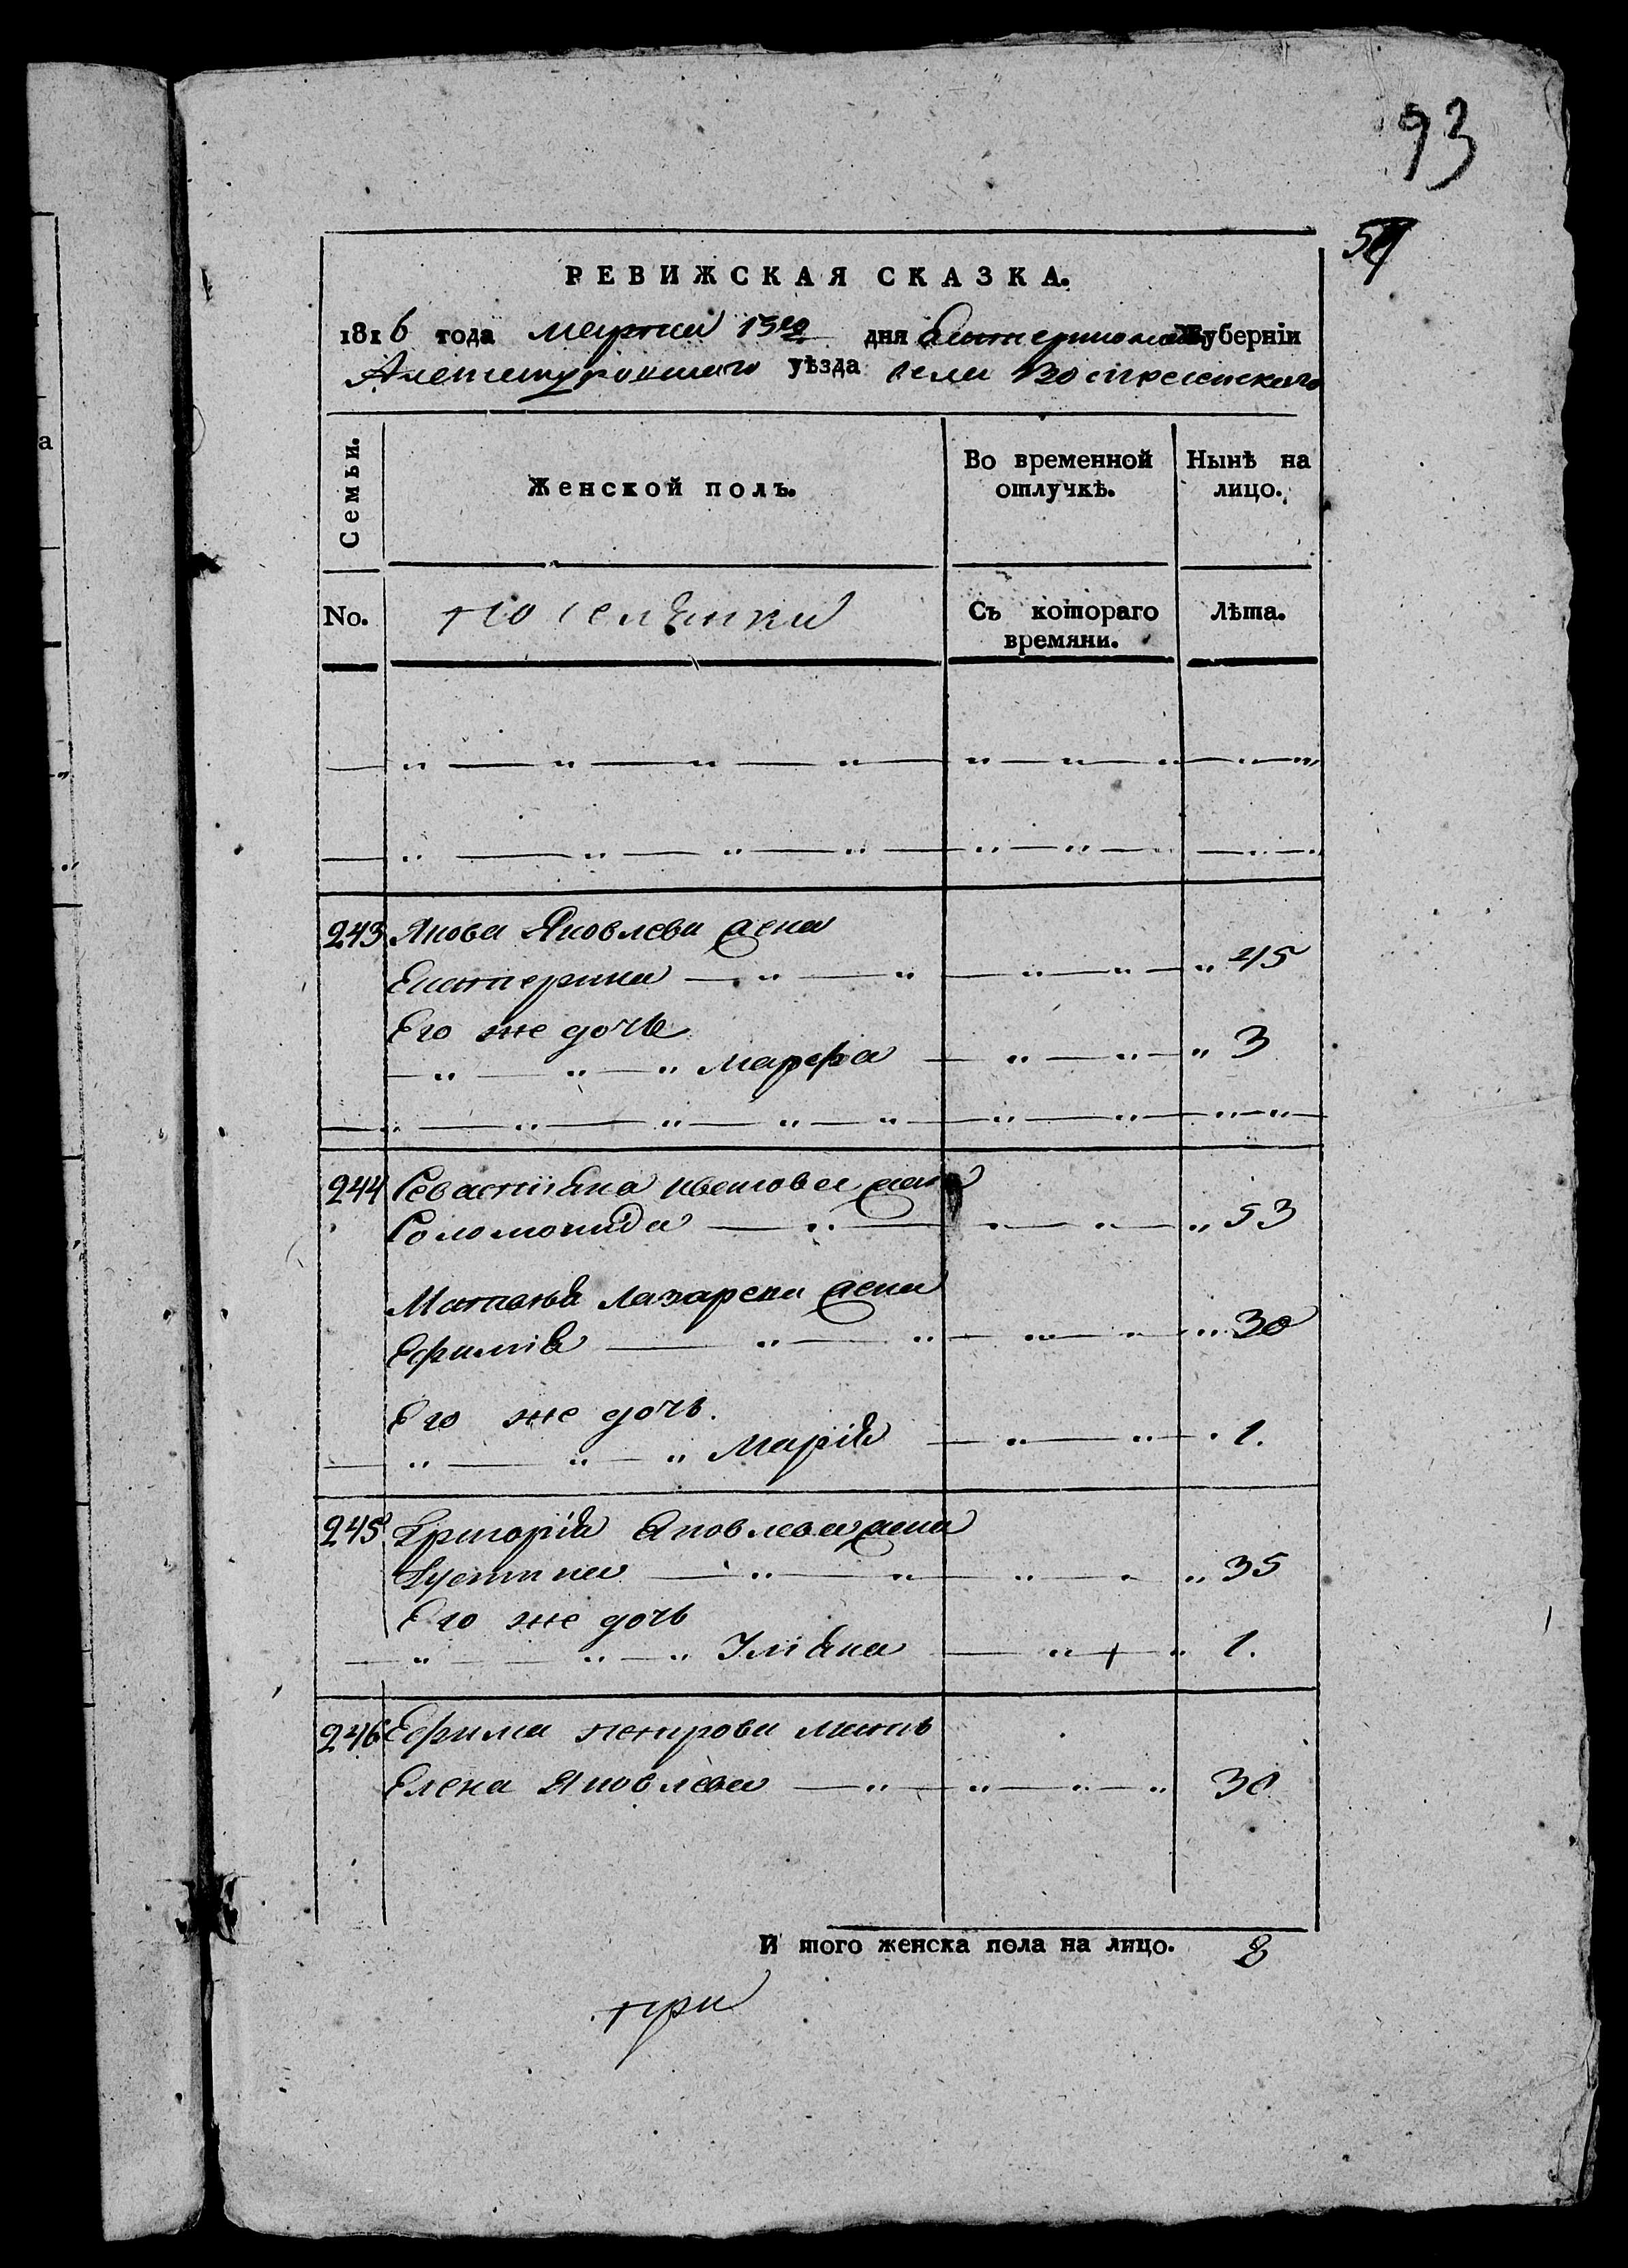 93
54
РЕВИЖСКАЯ СКАЗКА.
1816 года марта 15го дня Екатеринославской Губернiи
Александровского уѣзда села Воскресенскаго
Семьи.
Женской полъ.
Во временной отлучкѣ.
Нынѣ на лицо.
No.
поселянки
Съ котораго времяни.
Лѣта.
243 Якова Яковлева жена
Екатерина 45
Его же дочь
Марфа 3
244 Севастiяна жена
Соломонида 53
Матвѣя Лазарева жена
Ефимiя 30
Его же дочь.
Марiя 1.
245 Григорiя Яковлева жена
Густина 35
Его же дочь
Улiяна 1.
246 Ефима петрова мать
Елена Яковлева 30
И того женска пола на лицо. 8
при